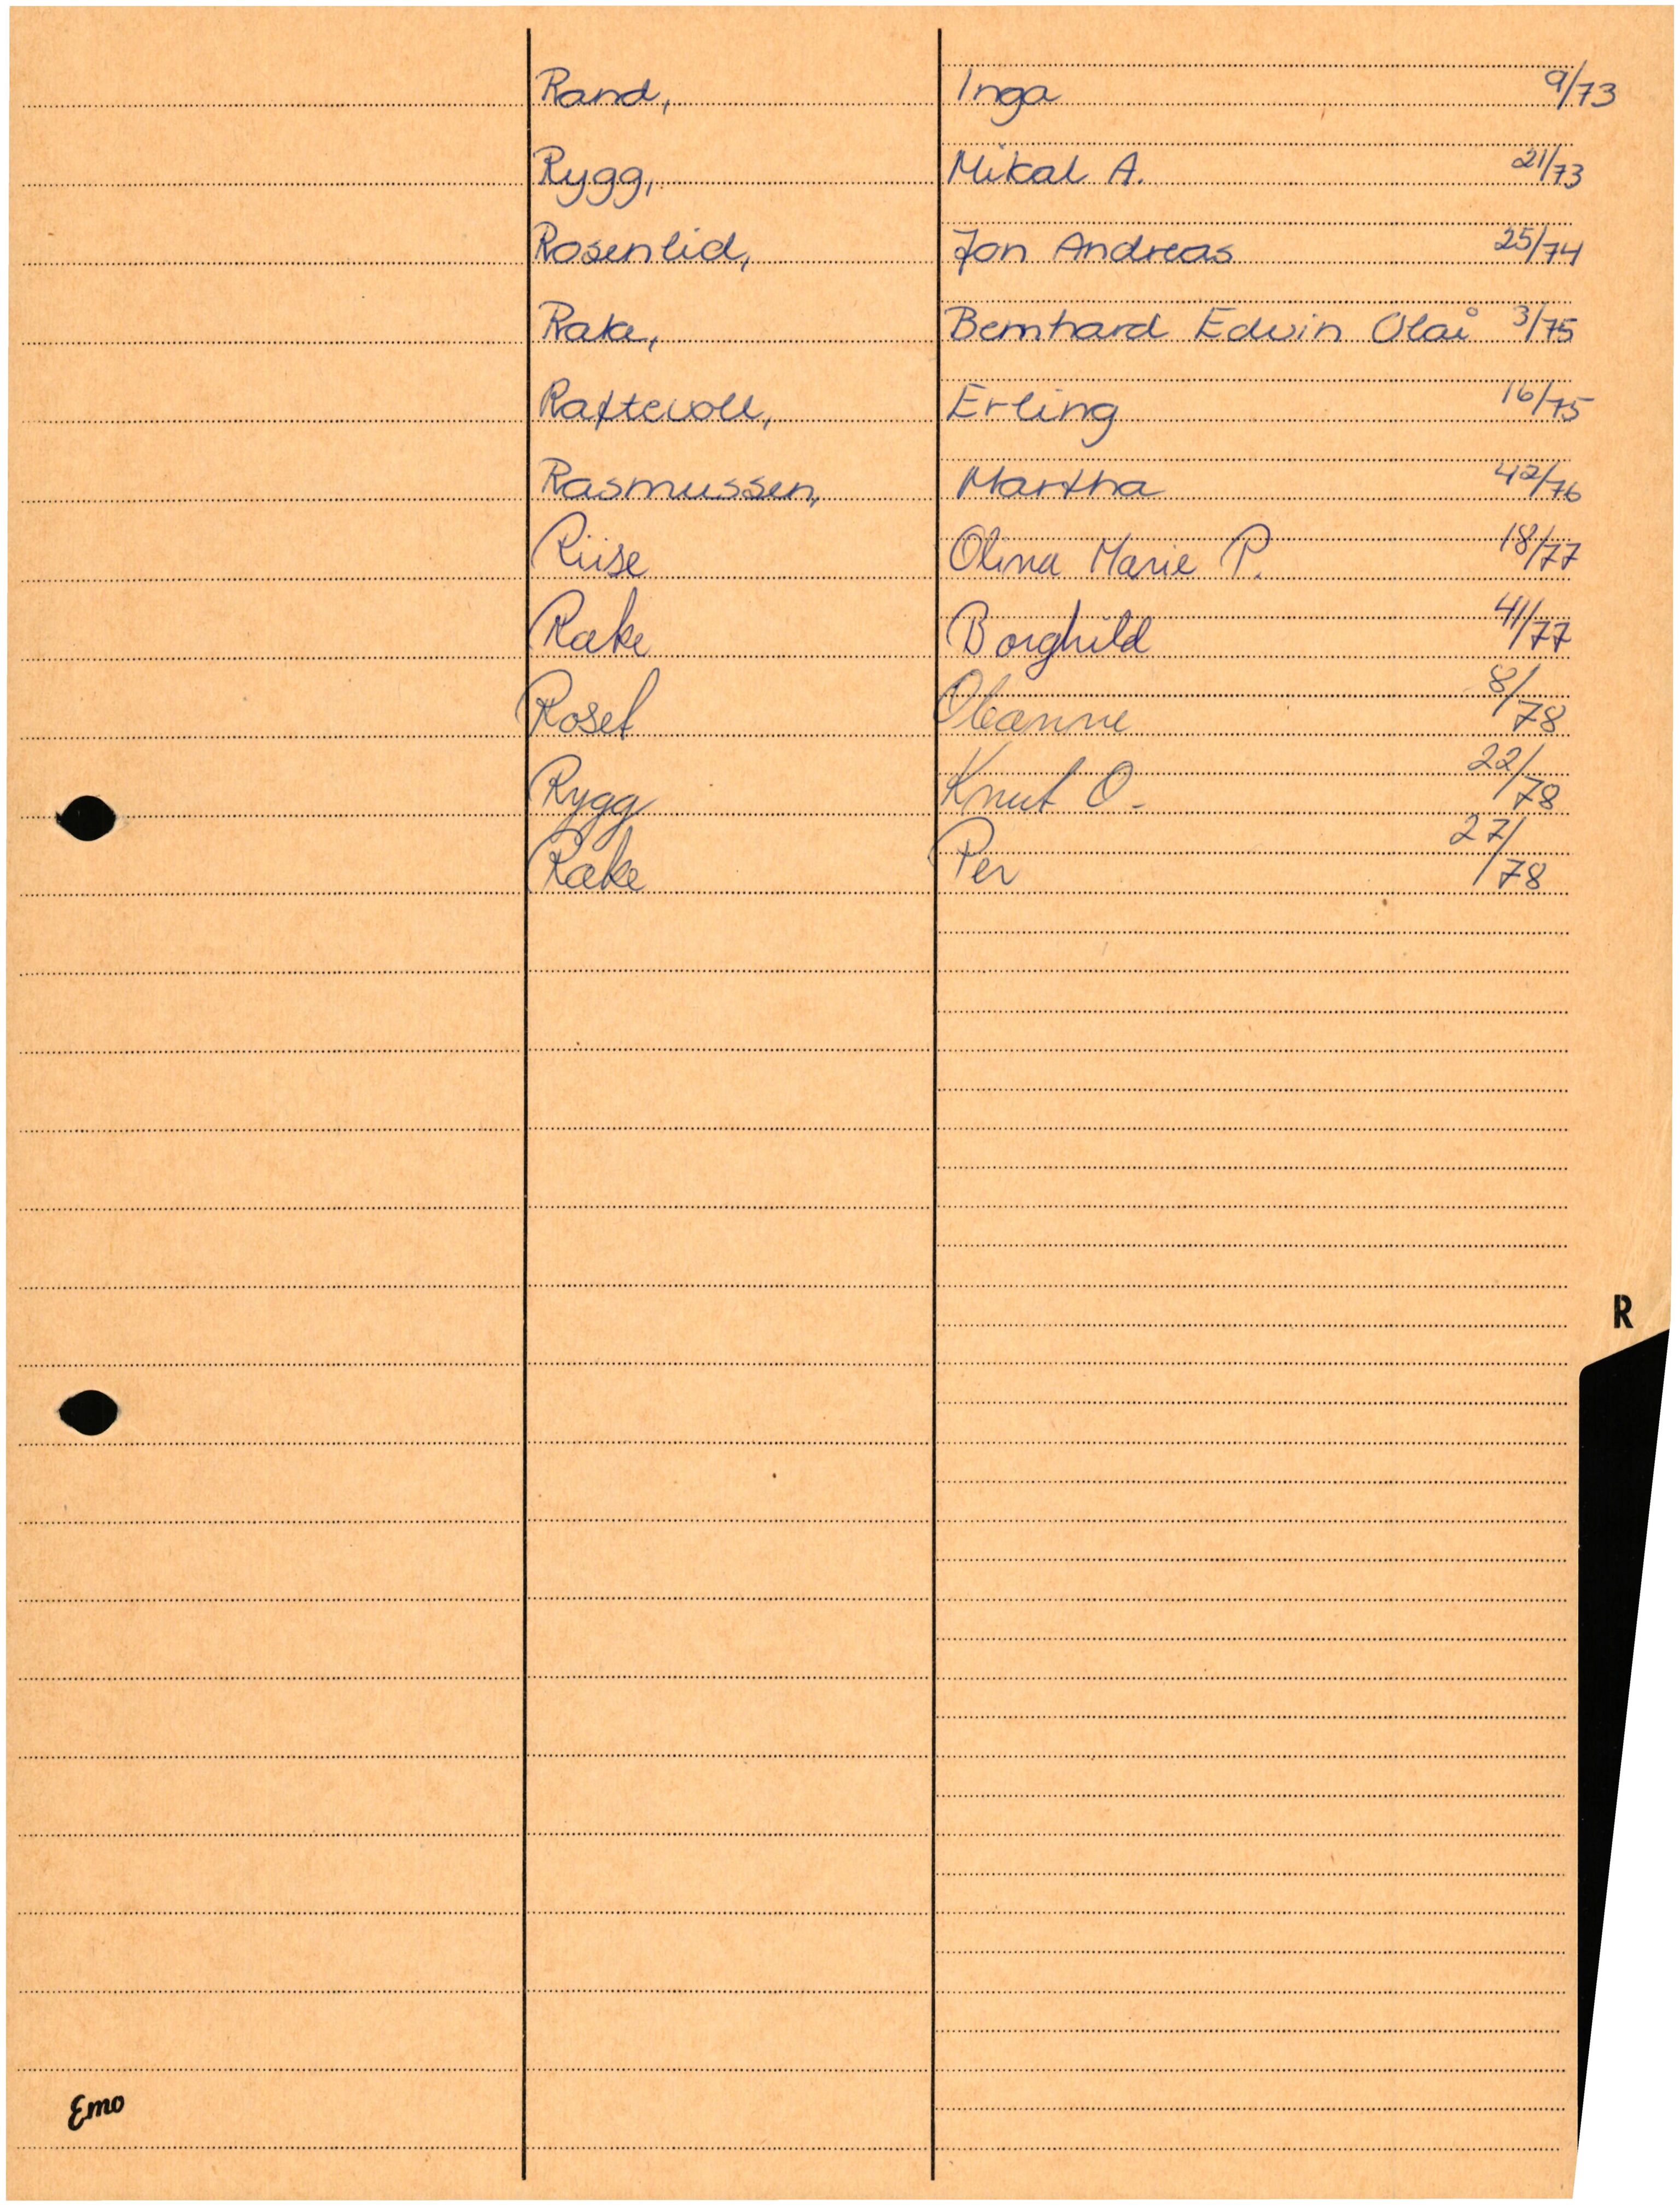 Rand, Inga 9/73
Rygg, Mikal A. 21/73
Rosenlid, Jon Andreas 25/74
Rake, Bernhard Edvin Olai 3/75
Raftevoll, Erling 16/75
Rasmussen, Martha 42/76
Riise Olina Marie P. 18/77
Rake Borghild 41/77
Roset Oleanne 8/78
Rygg Knut O. 22/78
Rake Per 27/78
R
Emo